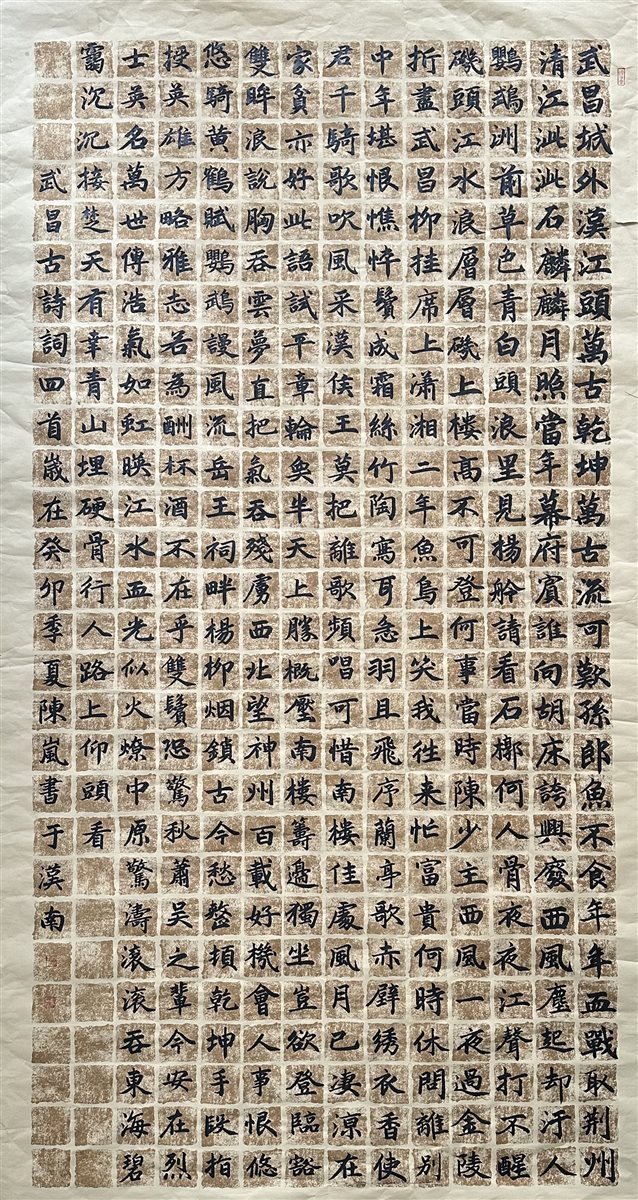 武昌城外漢江頭萬古乾坤萬古流可歎孫郎魚不食年年血戰取荆州
清江泚泚石麟麟月照當年幕府賓誰向胡床誇興廢西風塵起却汙人
鸚鵡洲前草色青白頭浪里見楊舲請看石槨何人骨夜夜江聲打不醒
磯頭江水浪層層磯上樓高不可登何事當時陳少主西風一夜過金陵
折盡武昌柳挂席上瀟湘二年魚鳥上笑我往来忙富貴何時休問離別
中年堪恨憔悴鬢成霜絲竹陶寫耳急羽且飛序蘭亭歌赤壁綉衣香使
君千騎歌吹風采漢侯王莫把離歌頻唱可惜南樓佳處風月已凄凉在
家貧亦好此語試平章輪奐半天上勝概壓南樓籌邊獨坐豈欲登臨豁
雙眸浪說胸吞雲夢直把氣吞殘虜西北望神州百載好機會人事恨悠
悠騎黄鶴賦鸚鵡謾風流岳王祠畔楊柳烟鎖古今愁整頓乾坤手段指
授英雄方略雅志若為酬杯酒不在乎雙鬢恐驚秋蕭吴之輩今安在烈
士英名萬世傳浩氣如虹暎江水血光似火燎中原驚濤滚滚吞東海碧
靄沉沉接楚天有幸青山埋硬骨行人路上仰頭看
武昌古詩詞四首歲在癸卯季夏陳嵐書于漢南